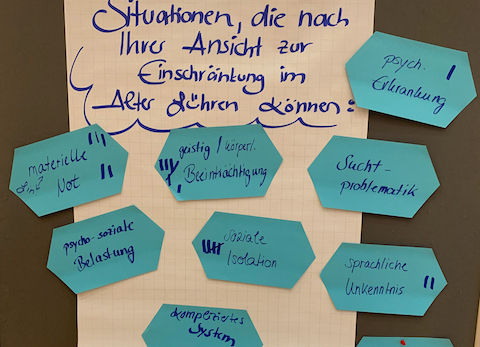 Situationen, die nach
Ihrer Ansicht zur
Einschränkung im
Alter führen können:
psych.
Erkrankung
materielle
Not
geistig / körperl.
Beeinträchtigung
Sucht-
problematik
psycho-soziale
Belastung
soziale
Isolation
sprachliche
Unkenntnis
kompliziertes
System